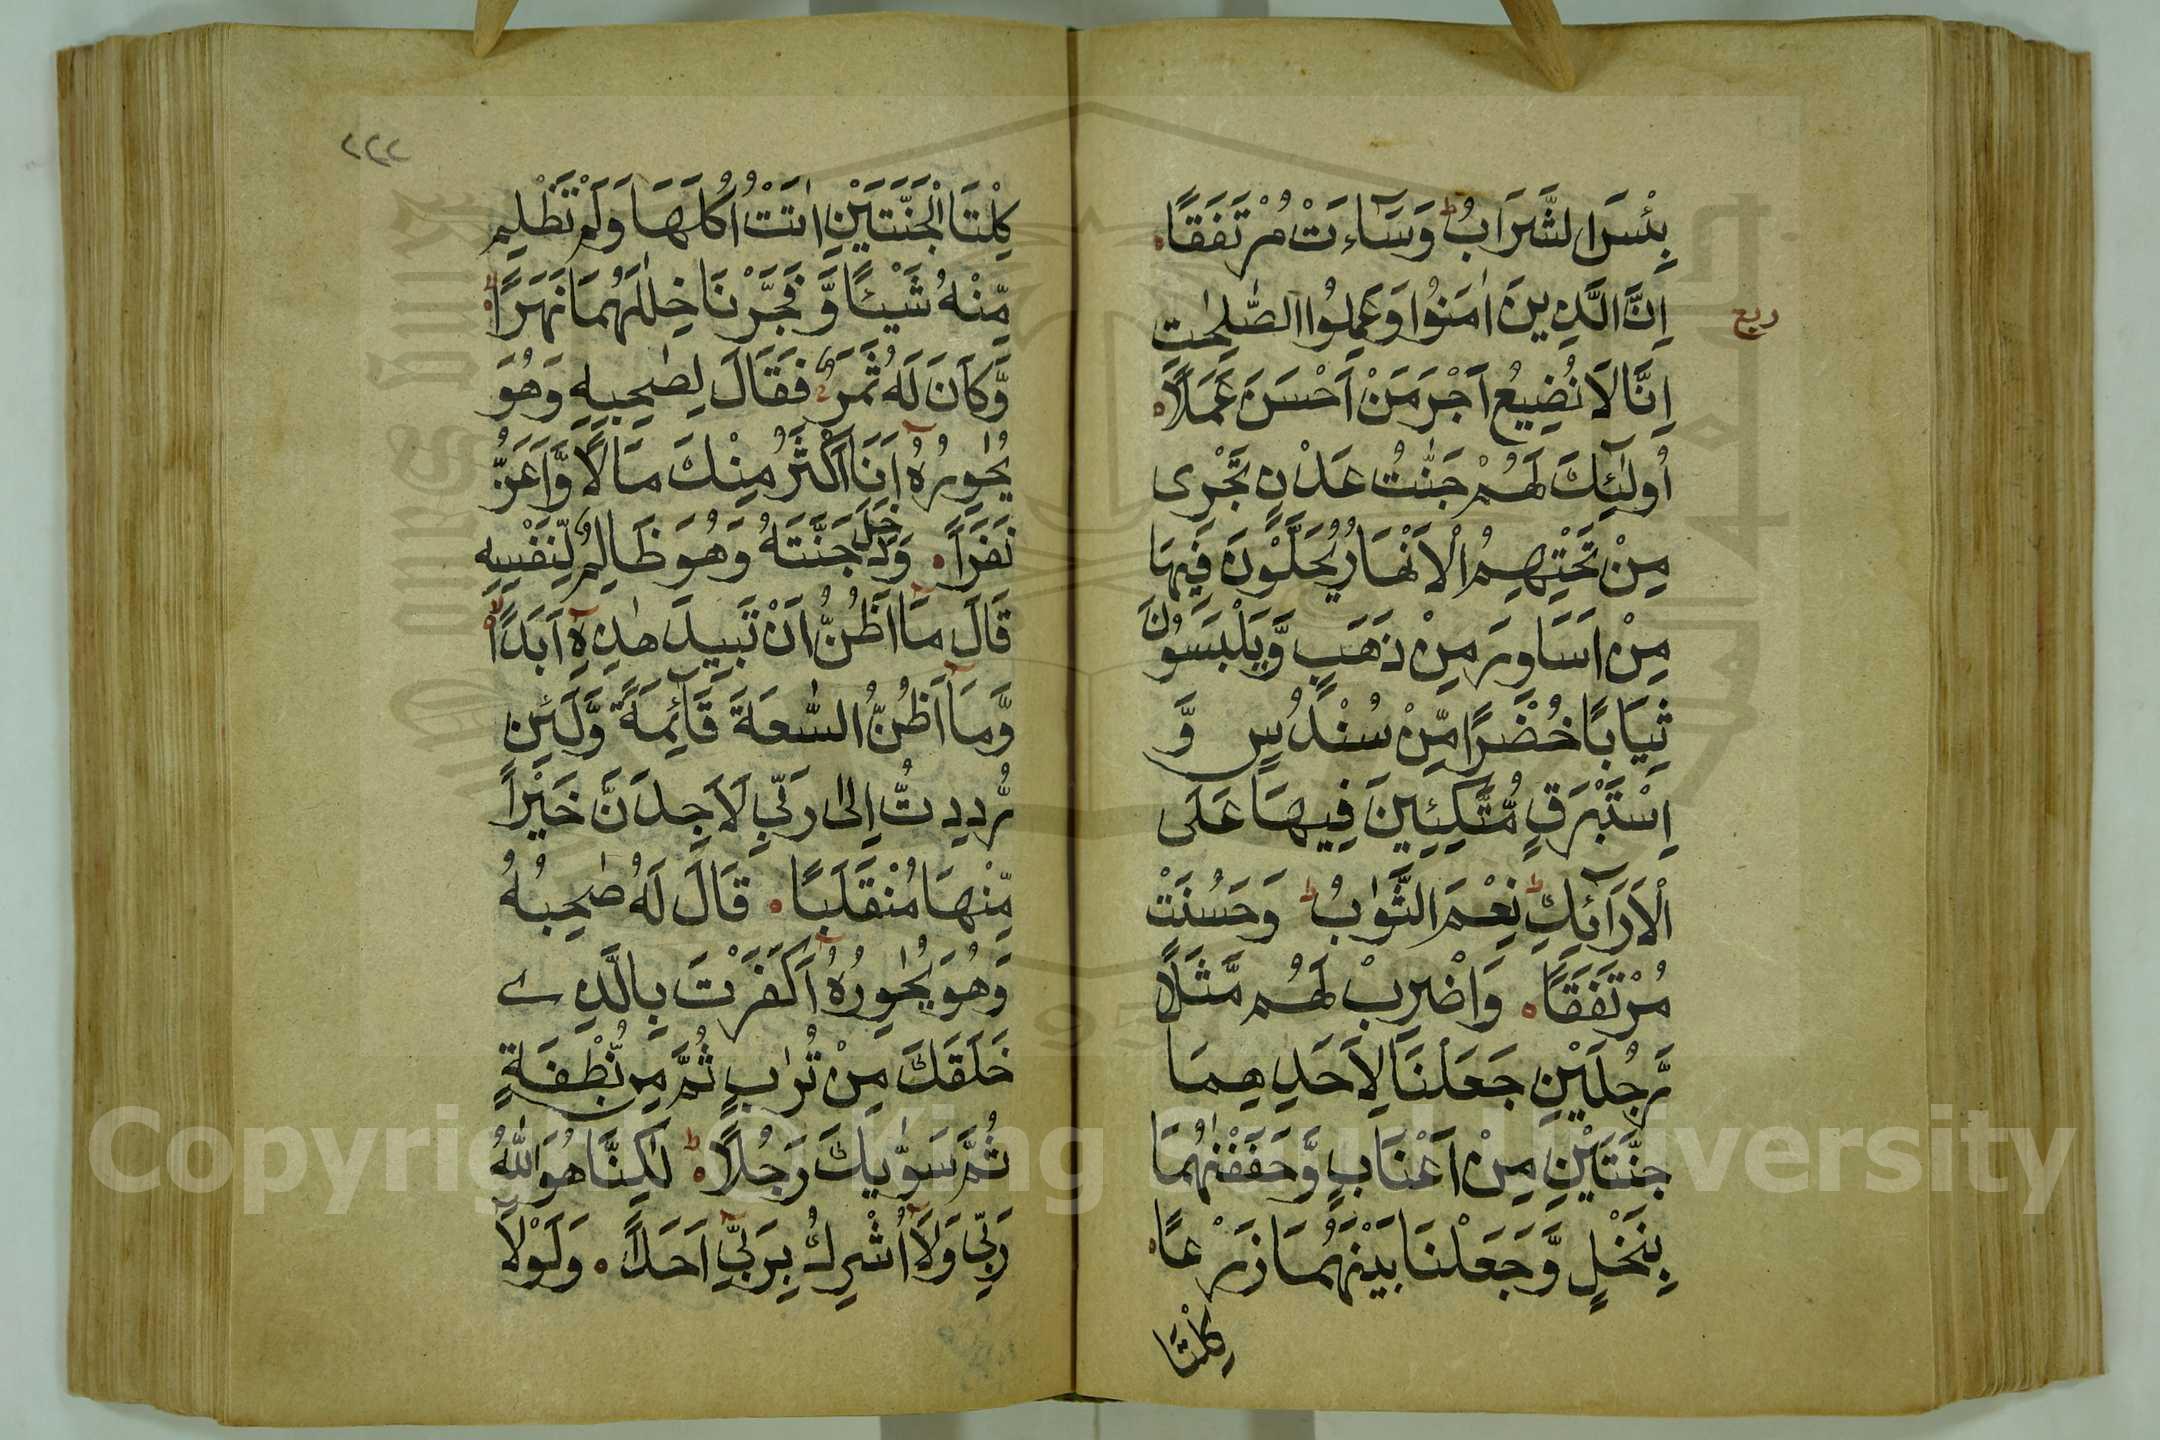 بِئْسَ الشَّرَابُ ط وَسَآءَتْ مُرْتَفَقًا ه
اِنَّ الَّذِينَ اٰمَنُوا وَعَمِلُوا الصّٰلِحٰتِ
ربع
اِنَّا لَا نُضِيعُ اَجْرَ مَنْ اَحْسَنَ عَمَلًا ه
اُولٰٓئِكَ لَهُمْ جَنّٰتُ عَدْنٍ تَجْرِى
مِنْ تَحْتِهِمُ الْاَنْهَارُ يُحَلَّوْنَ فِيهَا
مِنْ اَسَاوِرَ مِنْ ذَهَبٍ وَّيَلْبَسُونَ
ثِيَابًا خُضْرًا مِّنْ سُنْدُسٍ وَّ
اِسْتَبْرَقٍ مُّتَّكِئِينَ فِيهَا عَلَى
الْاَرَآئِكِ ط نِعْمَ الثَّوَابُ ط وَحَسُنَتْ
مُرْتَفَقًا ه وَاضْرِبْ لَهُم مَّثَلًا
رَّجُلَيْنِ جَعَلْنَا لِاَحَدِهِمَا
جَنَّتَيْنِ مِنْ اَعْنَابٍ وَّحَفَفْنٰهُمَا
بِنَخْلٍ وَّجَعَلْنَا بَيْنَهُمَا زَرْعًا ه
كِلْتَا
٢٢٢
كِلْتَا الْجَنَّتَيْنِ اٰتَتْ اُكُلَهَا وَلَمْ تَظْلِم
مِّنْهُ شَيْئًا وَّفَجَّرْنَا خِلٰلَهُمَا نَهَرًا ه ط
وَّكَانَ لَهُ ثَمَرٌ ه فَقَالَ لِصٰحِبِهِ وَهُوَ
يُحٰوِرُهُ اَنَا اَكْثَرُ مِنْكَ مَالًا وَّاَعَزُّ
نَفَرًا ه وَدَخَلَ جَنَّتَهُ وَهُوَ ظَالِمٌ لِّنَفْسِهِ
قَالَ مَا اَظُنُّ اَنْ تَبِيدَ هٰذِهِ اَبَدًا ه لا
وَّمَا اَظُنُّ السّٰعَةَ قَآئِمَةً وَّلَئِن
رُّدِدتُّ اِلٰى رَبِّي لَاَجِدَنَّ خَيْرًا
مِّنْهَا مُنْقَلَبًا ه قَالَ لَهُ صٰحِبُهُ
وَهُوَ يُحٰوِرُهُ اَكَفَرْتَ بِالَّذِي
خَلَقَكَ مِنْ تُرٰابٍ ثُمَّ مِن نُّطْفَةٍ
ثُمَّ سَوّٰيكَ رَجُلًا ه ط لٰكِنَّا هُوَ اللّٰهُ
رَبِّي وَلَا اُشْرِكُ بِرَبِّي اَحَدًا ه وَلَوْلَا
Copyright © King Saud University
King Saud University
1957